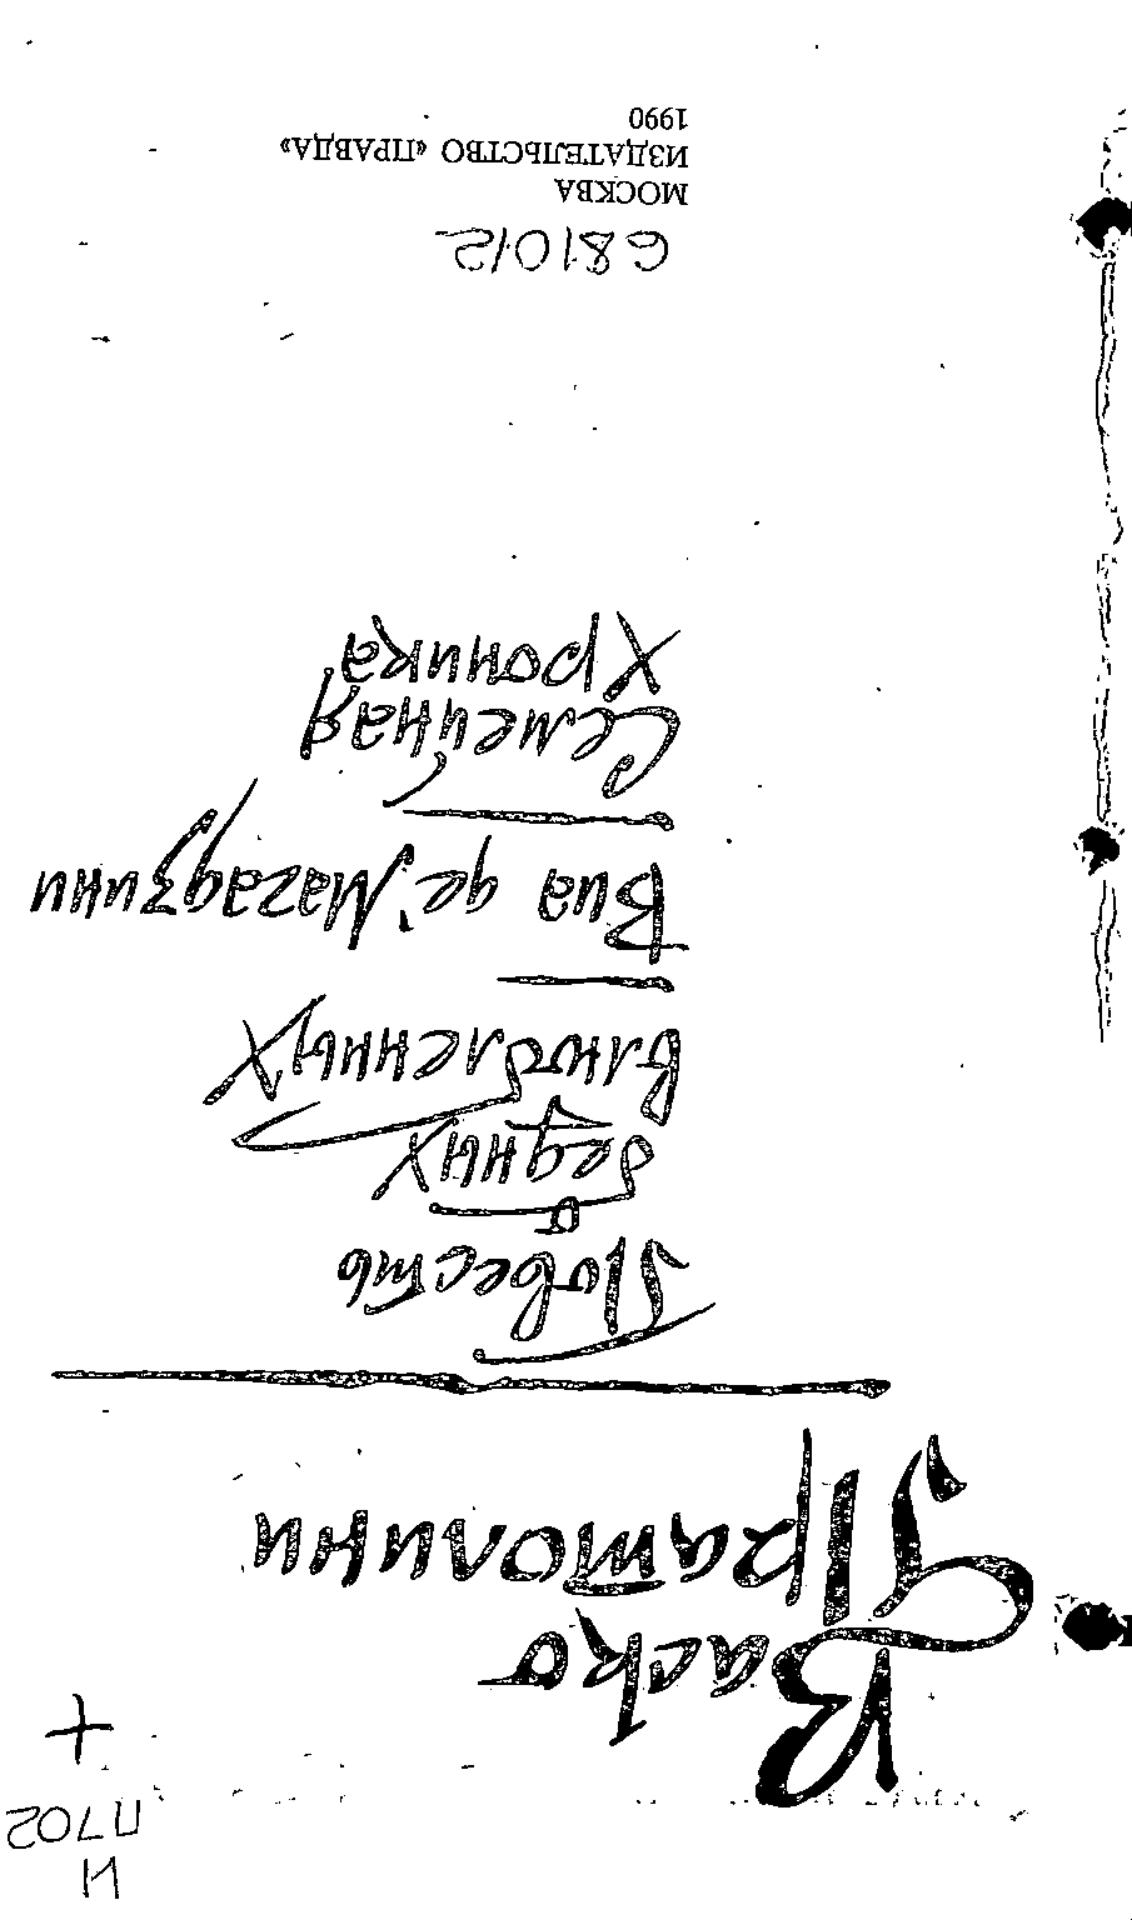 И
П702
+
Васко
Пратолини
Повесть
о
бедных
влюбленных
Виа де'Магадзини
Семейная
хроника
681012
МОСКВА
ИЗДАТЕЛЬСТВО «ПРАВДА»
1990